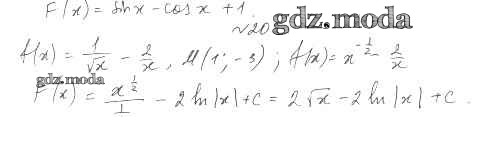 F(x) = sin x - cos x + 1.
~20 gdz.moda
f(x) = 1/√x - 2/x, M(1; -3); f(x) = x^(-1/2) - 2/x
gdz.moda
F(x) = x^(1/2)/(1/2) - 2 ln|x| + C = 2√x - 2 ln|x| + C.